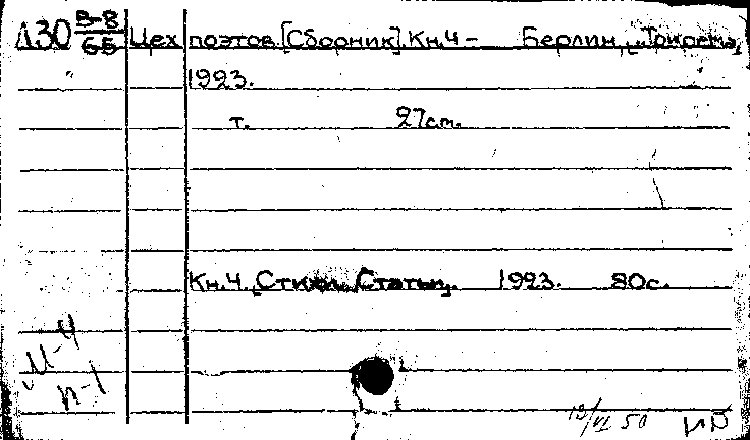 Л30 В-8/65 Цех поэтов [Сборник]. Кн.4 - Берлин, "Трирема",
1923.
т. 27см.
Кн.4. [Стихи. Статьи]. 1923. 80с.
М-4
п-1
13/VI 50 ИП